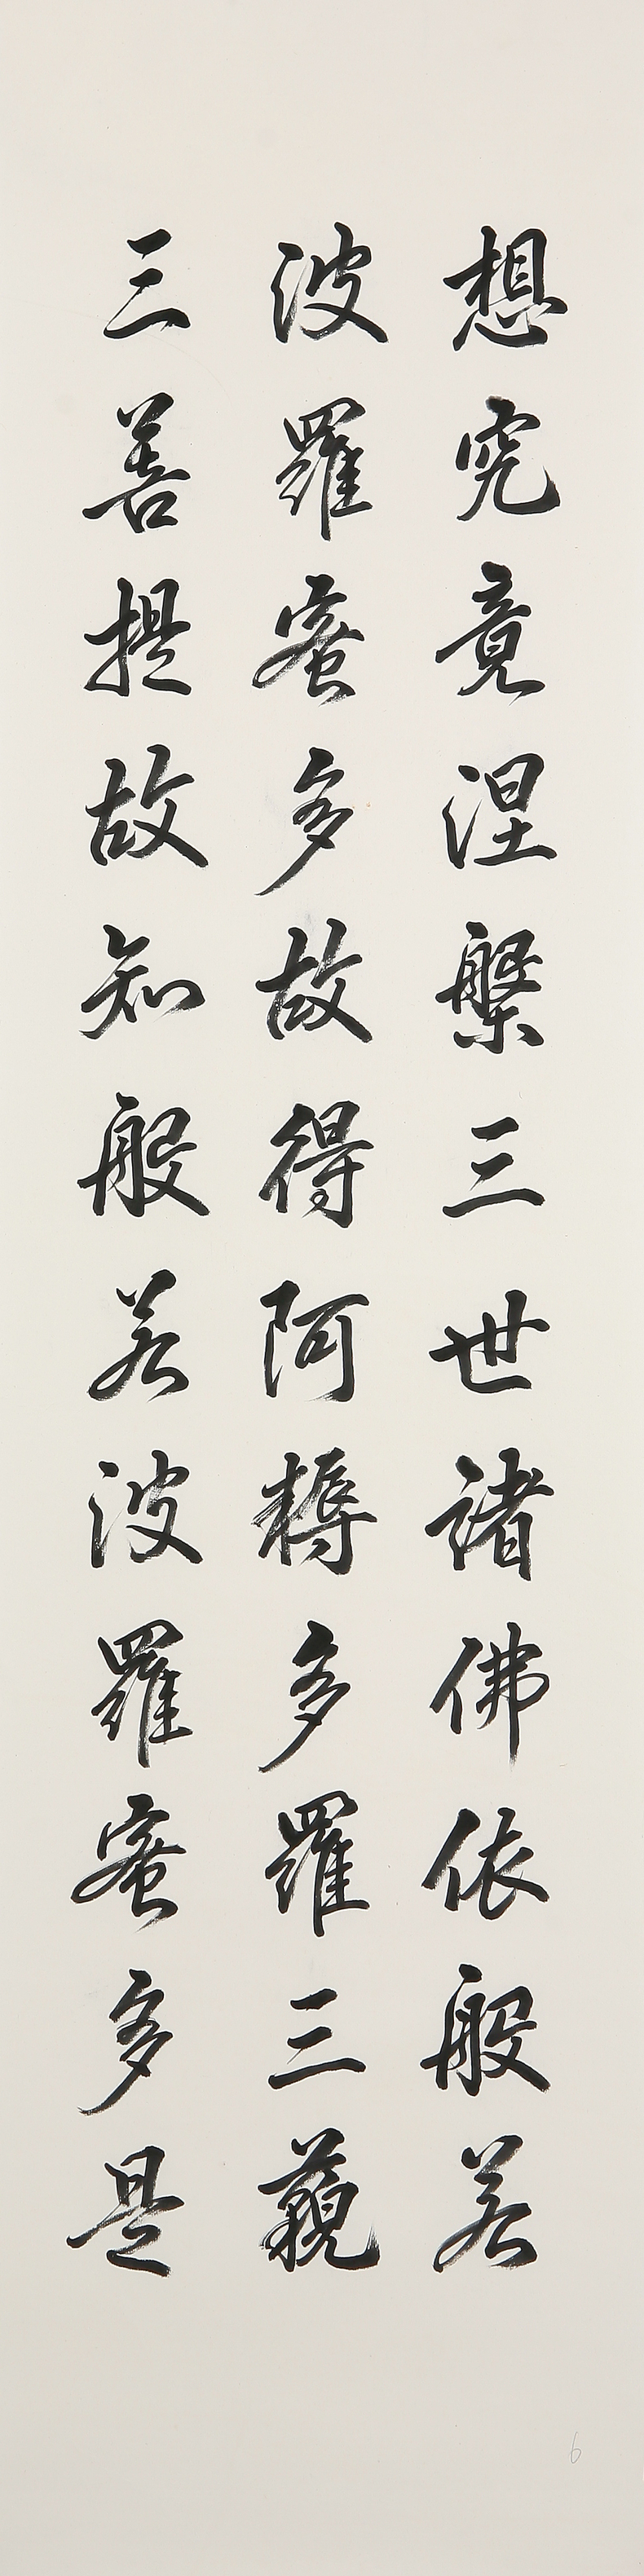 想究竟涅槃三世諸佛依般若
波羅蜜多故得阿耨多羅三藐
三菩提故知般若波羅蜜多是
6